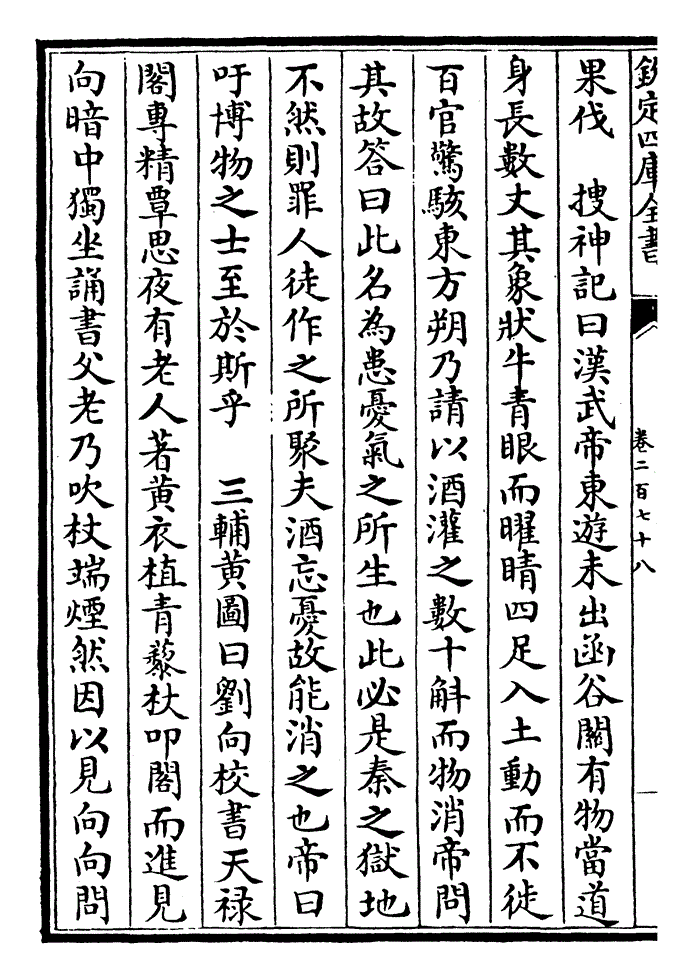 欽定四庫全書
卷二百七十八
果伐　搜神記曰漢武帝東遊未出函谷關有物當道
身長數丈其象狀牛青眼而曜睛四足入土動而不徙
百官驚駭東方朔乃請以酒灌之數十斛而物消帝問
其故答曰此名為患憂氣之所生也此必是秦之獄地
不然則罪人徒作之所聚夫酒忘憂故能消之也帝曰
吁博物之士至於斯乎　三輔黄圖曰劉向校書天禄
閣專精覃思夜有老人著黄衣植青藜杖叩閣而進見
向暗中獨坐誦書父老乃吹杖端煙然因以見向向問